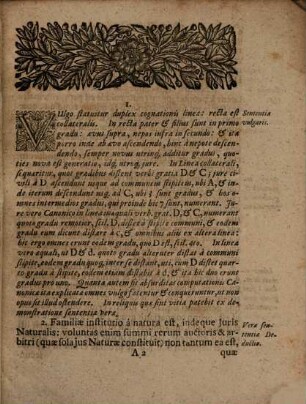 1.
VUlgo statuitur duplex cognationis linea: recta est
& collateralis. In recta pater & filius sunt in primo
gradu: avus supra, nepos infra in secundo: & ita
porro inde ab avo ascendendo, hinc a nepote descen-
dendo, semper novus utrinque, additur gradus, quo-
ties nova est generatio, idque utroque jure. In Linea collaterali,
si quæritur, quot gradibus distent verbi gratia D & C; jure ci-
vili à D. ascendunt usque ad communem stipitem, ubi A, & in-
de iterum descendunt usque ad C, ubi & sunt gradus, & hos o-
mnes intermedios gradus, qui proinde hic 7 sunt, numerant. Ju-
re vero Canonico in linea inæquali verb. græ. D, & C, numerant
quoto gradu remotior, scil. D, distet à stipite communi, & eodem
gradu eum dicunt distare à c, & omnibus aliis ex altera linea:
hic ergo omnes erunt eodem gradu, quo D est, scil. 4to. In linea
vero æquali, ut D & d. quoto gradu alteruter distat à communi
stipite, eodem gradu quoque inter se distant, uti, cum D distet quar-
to gradu à stipite, eodem etiam distabit à d, & ita hic duo erunt
gradus pro uno. Quanta autem sit absurditas computationis Ca-
nonicæ ita explicatæ omnes vulgo fatentur & conqueruntur, ut non
opus sit illud ostendere. In reliquis quæ sint vitia patebit ex de-
monstratione sententiæ veræ.
Sententia
vulgaris.
2. Familiæ institutio à natura est, indeque Juris
Naturalis: voluntas enim summi rerum auctoris & ar-
bitri (quæ sola jus Naturæ constituit) non tantum ea est,
Vera sen-
tentia De-
ductio.
A 2
quæ